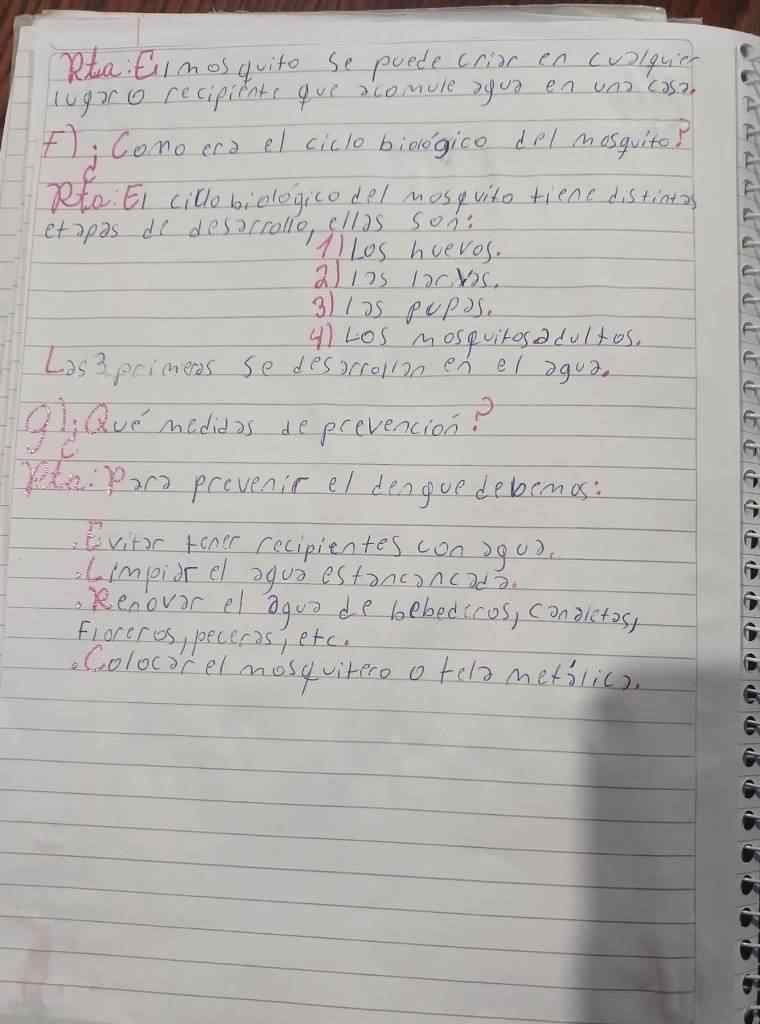 Rta: El mosquito se puede criar en cualquier
lugar o recipiente que acomule agua en una casa.
F) ¿Como era el ciclo biológico del mosquito?
Rta: El cillo biológico del mosquito tiene distintas
etapas de desarrollo, ellas son:
1) Los huevos.
2) las larvas.
3) las pupas.
4) Los mosquitos adultos.
Las 3 primeras se desarrollan en el agua.
g) ¿Qué medidas de prevención?
Rta: Para prevenir el dengue debemos:
. Evitar tener recipientes con agua.
. Limpiar el agua estancancada.
. Renovar el agua de bebederos, canaletas,
Floreros, peceras, etc.
. Colocar el mosquitero o tela metálica.